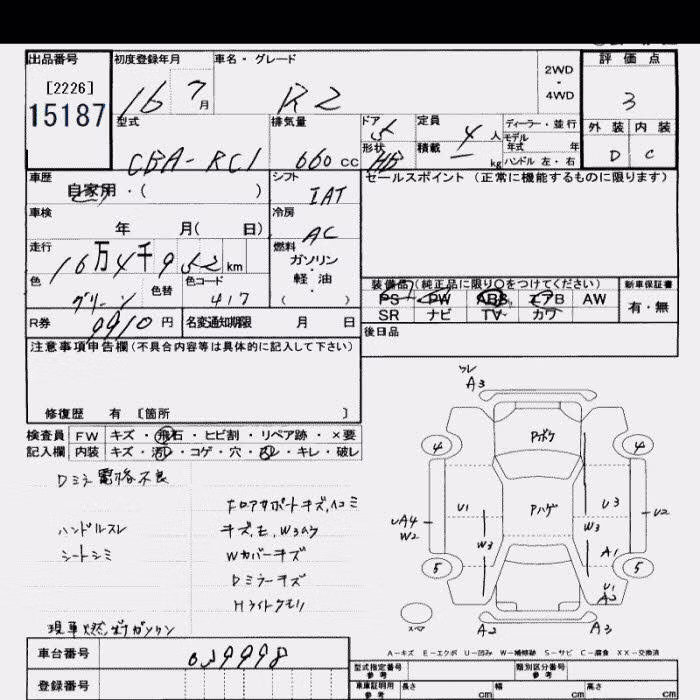 出品番号 初度登録年月 車名・グレード 2WD ・ 4WD 評価点
[2226]
15187
16 7月 R2 3
型式 排気量 ドア 5 定員 4人 ディーラー・並行 外装 内装
CBA-RC1 660cc 形状 HB 積載 kg モデル年式 年 ハンドル 左・右 D C
車歴 シフト セールスポイント (正常に機能するものに限ります)
自家用・( ) IAT
車検 冷房
年 月( 日) AC
走行 燃料
16万4千952km ガソリン・軽油・( )
色 色替 色コード 装備品(純正品に限り〇をつけてください) 新車保証書
グリーン 417 PS PW ABS エアB AW 有・無
SR ナビ TV カワ
R券 9910円 名変通知期限 月 日 後日品
注意事項申告欄 (不具合内容等は具体的に記入して下さい)
修復歴 有 [箇所 ]
検査員 FW キズ・飛石・ヒビ割・リペア跡・×要
記入欄 内装 キズ・汚レ・コゲ・穴・スレ・キレ・破レ
Dミラー電格不良
フロアサポートキズ、ヘコミ
ハンドルスレ
シートシミ
Wカバーキズ
Dミラーキズ
Hライトクモリ
A3
Pボケ
4 4
Pハゲ
U1 U3
UA4 U2
W2 W3 W3
A1
5 5
U1
A2
スペア
A2 A3
A-キズ E-エクボ U-凹み W-補修跡 S-サビ C-腐食 XX-交換済
車台番号 039998
登録番号
型式指定番号 参考 類別区分番号 参考
車庫証明用 参考 長さ cm 幅 cm 高さ cm